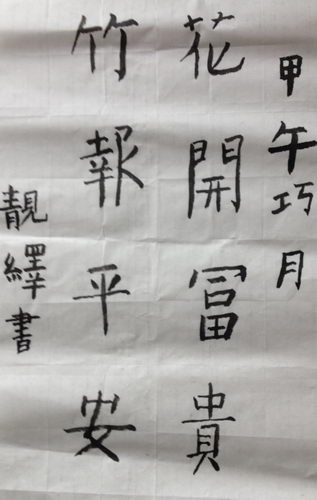 甲午巧月
花開冨貴
竹報平安
靚繹書